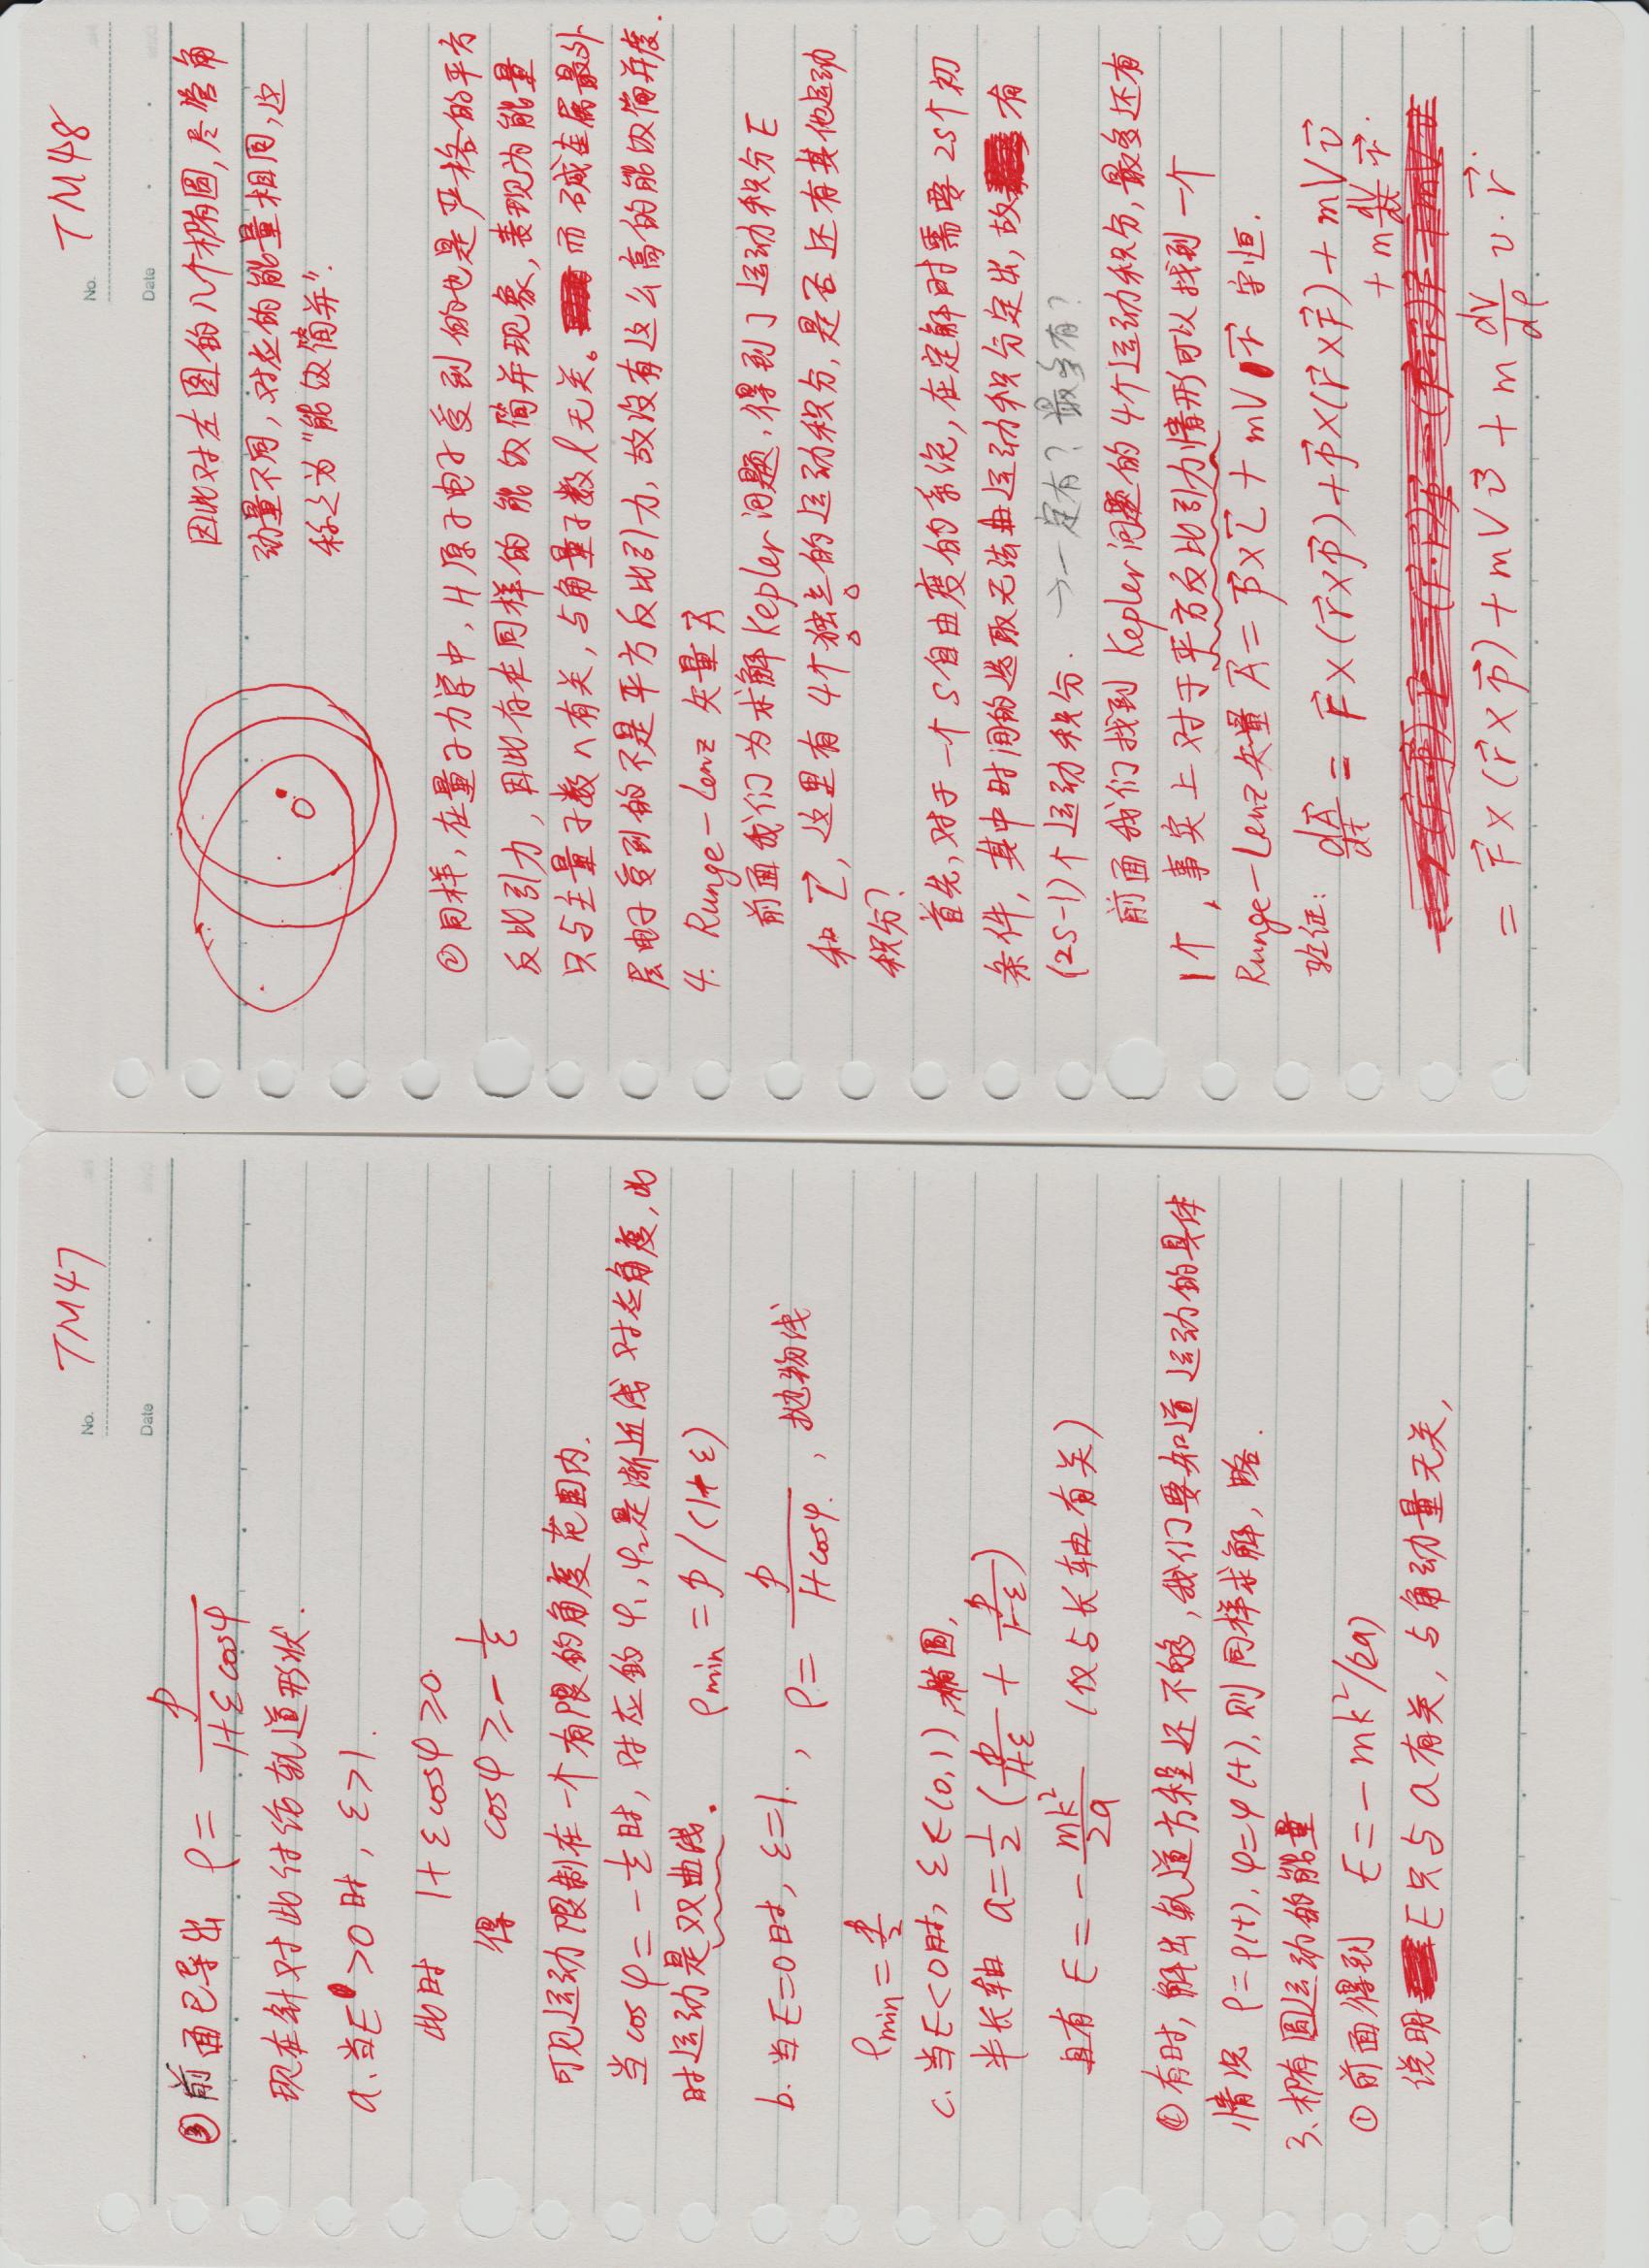 No. TM47
Date
③前面已导出 ρ = p / (1+ε cosφ)
现在针对此讨论轨道形状.
a. 当E>0时, ε>1.
此时 1+ε cosφ ≥0
得 cosφ ≥ - 1/ε
可见运动限制在一个有限的角度范围内.
当 cosφ = - 1/ε 时, 对应的 φ₁, φ₂是渐近线对应角度, 此
时运动是双曲线. ρmin = p/(1+ε)
b. 当E=0时, ε=1. , ρ = p / (1+cosφ) , 抛物线
ρmin = p/2
c. 当E<0时, ε∈(0,1), 椭圆,
半长轴 a = 1/2 ( p/(1+ε) + p/(1-ε) )
且有 E = - mk²/2a (仅与长轴有关)
④有时, 解出轨道方程还不够, 我们要知道运动的具体
情况 ρ=ρ(t), φ=φ(t), 则同样求解, 略.
3、椭圆运动的能量
①前面得到 E = - mk²/(2a)
说明 E只与a有关, 与角动量无关,
No. TM48
Date
因此对左图的几个椭圆, 尽管角
动量不同, 对应的能量相同, 这
称之为"能级简并".
O
②同样, 在量子力学中, H原子电子受到的也是严格的平方
反比引力, 因此存在同样的能级简并现象, 表现为能量
只与主量子数n有关, 与角量子数l无关。而碱金属最外
层电子受到的不是平方反比引力, 故没有这么高的能级简并度.
4. Runge-Lenz 矢量A⃗
前面我们为求解Kepler问题, 得到了运动积分E
和 L⃗, 这里有4个独立的运动积分, 是否还有其他运动
积分?
首先, 对于一个S自由度的系统, 在定解时需要2S个初
条件, 其中时间的选取无法由运动积分定出, 故有
(2S-1)个运动积分. →一定有? 最多有?
前面我们找到Kepler问题的4个运动积分, 最多还有
1个, 事实上对于平方反比引力情形可以找到一个
Runge-Lenz矢量 A⃗ = p⃗×L⃗ + mV r⃗ 守恒.
验证: dA⃗/dt = F⃗×(r⃗×p⃗) + p⃗×(r⃗×F⃗) + mV v⃗
+ m dV/dt r⃗.
= F⃗×(r⃗×p⃗) + mV v⃗ + m dV/dρ v. r⃗